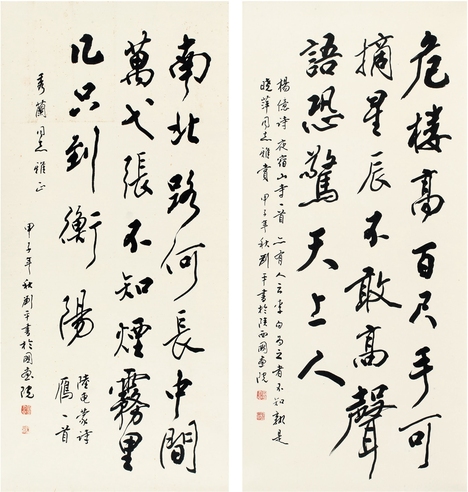 危楼高百尺手可
摘星辰不敢高聲
語恐驚天上人
楊億诗夜宿山寺一首亦有人云李白为之者不知孰是
晓萍同志雅賞 甲子年秋劉平書於陕西國画院
南北路何長中間
萬弋張不知煙霧里
几只到衡陽
陸龟蒙诗
雁一首
秀蘭同志雅正
甲子年秋劉平書於國画院